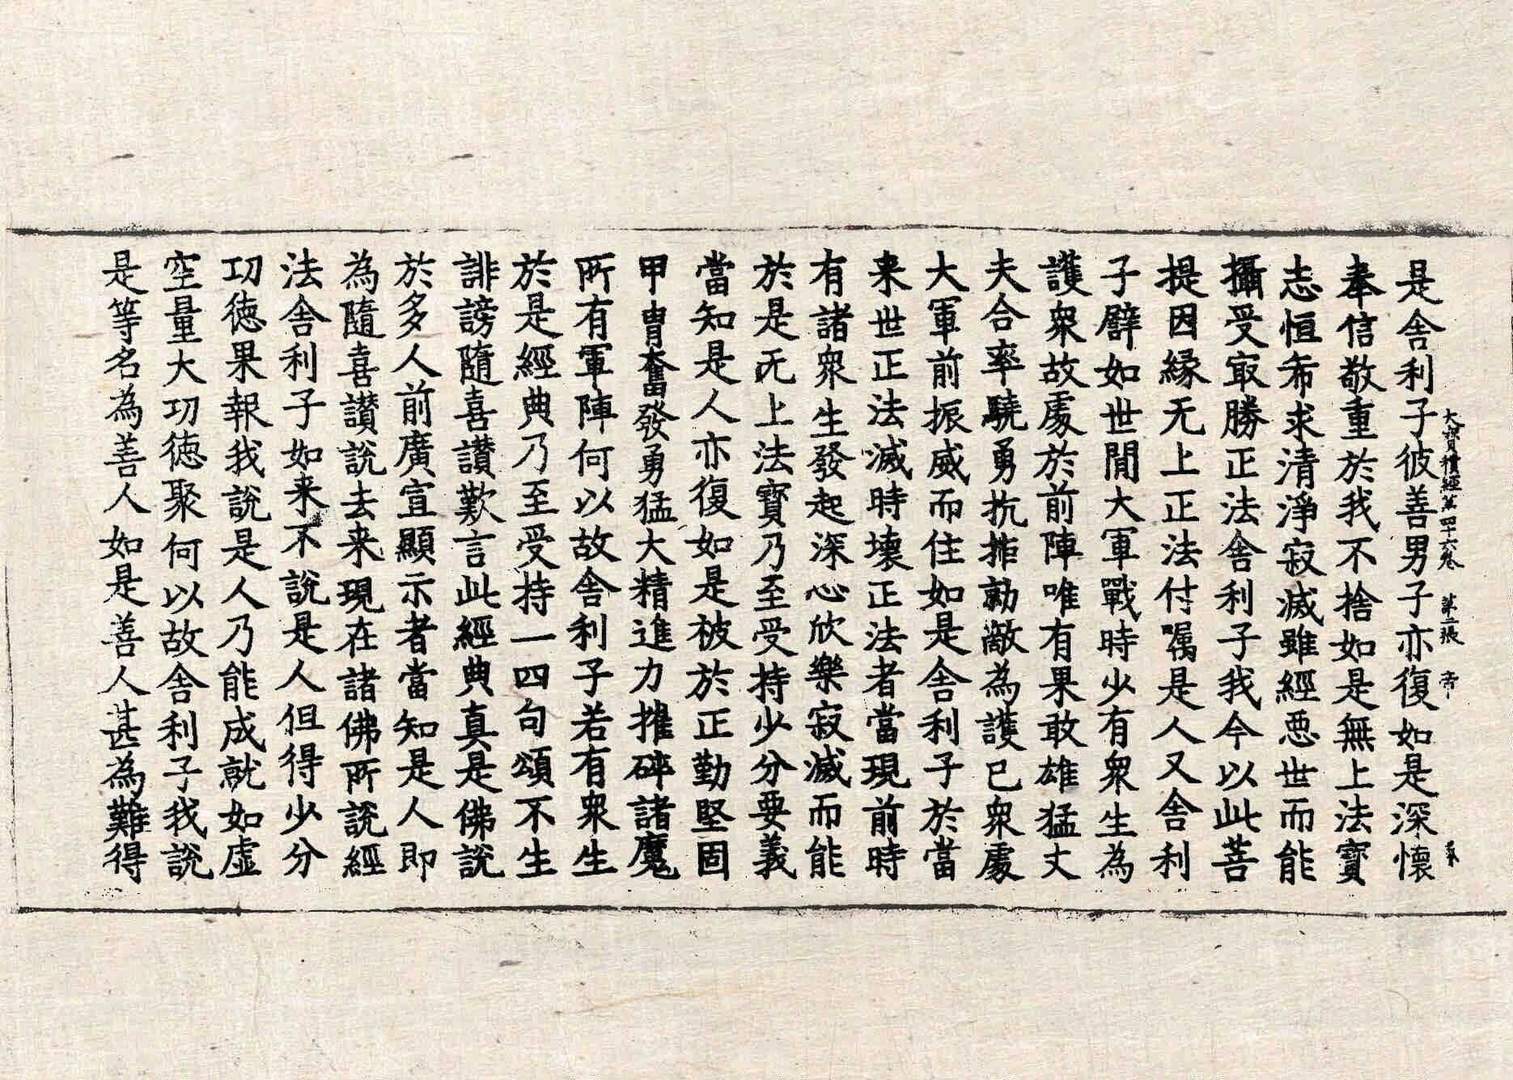 大寶積經第四十六卷　第二張　帝
是舍利子彼善男子亦復如是深懷
奉信敬重於我不捨如是無上法寶
志恒希求清淨寂滅雖經惡世而能
攝受㝡勝正法舍利子我今以此菩
提因緣无上正法付嘱是人又舍利
子譬如世間大軍戰時少有衆生為
護衆故處於前陣唯有果敢雄猛丈
夫合率驍勇抗拒勍敵為護已衆處
大軍前振威而住如是舍利子於當
来世正法滅時壞正法者當現前時
有諸衆生發起深心欣樂寂滅而能
於是无上法寶乃至受持少分要義
當知是人亦復如是被於正勤堅固
甲冑奮發勇猛大精進力摧碎諸魔
所有軍陣何以故舍利子若有衆生
於是經典乃至受持一四句頌不生
誹謗隨喜讃歎言此經典真是佛說
於多人前廣宣顯示者當知是人即
為隨喜讃說去来現在諸佛所說經
法舍利子如来不說是人但得少分
功德果報我說是人乃能成就如虛
空量大功德聚何以故舍利子我說
是等名為善人如是善人甚為難得